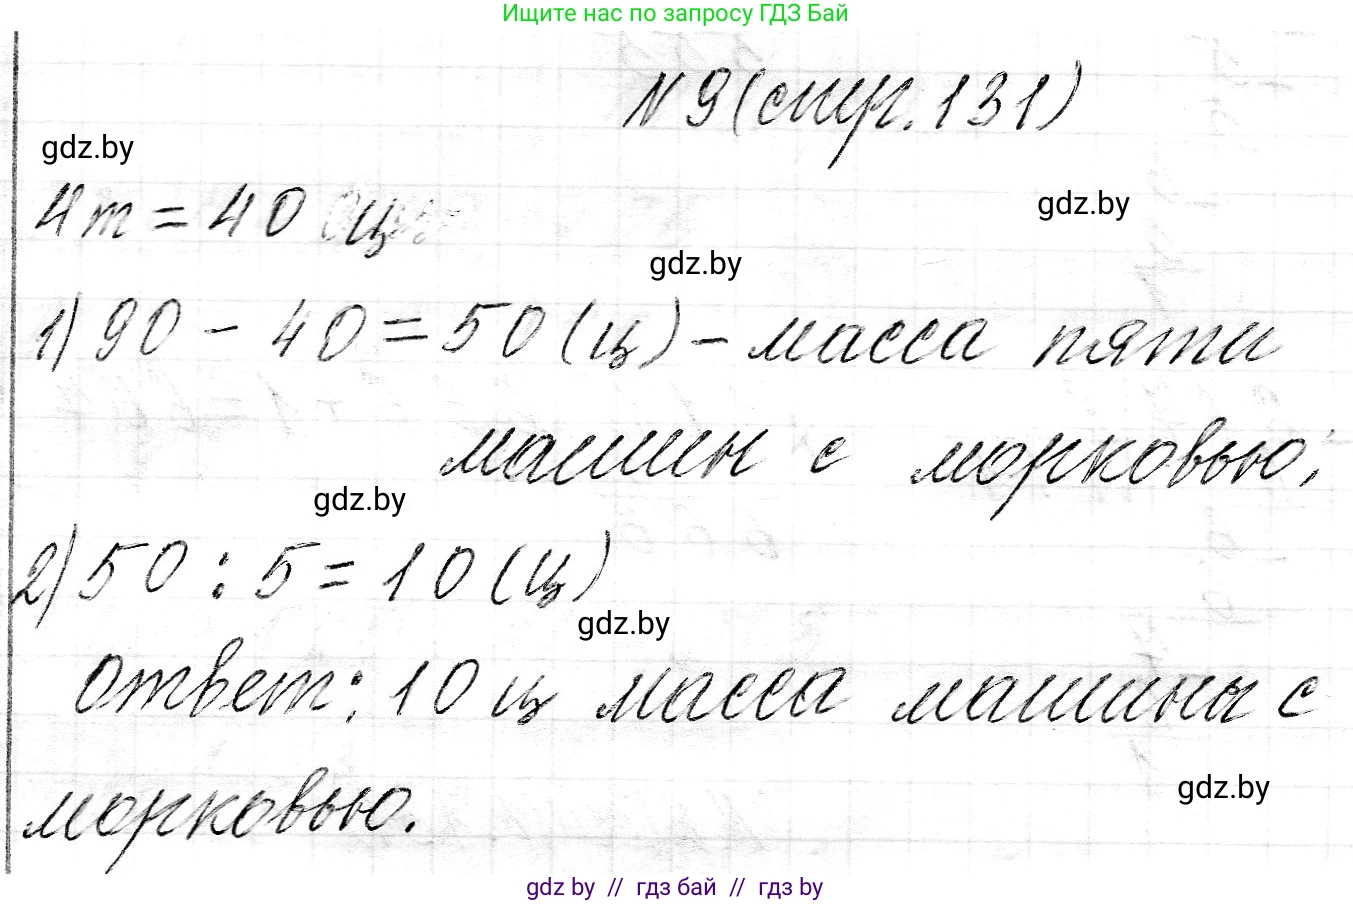 Ищите нас по запросу ГДЗ Бай
N 9 (стр. 131)
gdz.by
4 т = 40 ц
gdz.by
gdz.by
1) 90 - 40 = 50 (ц) - масса пяти
машин с морковью;
gdz.by
2) 50 : 5 = 10 (ц)
gdz.by
Ответ: 10 ц масса машины с
gdz.by
морковью.
gdz by // гдз бай // гдз by